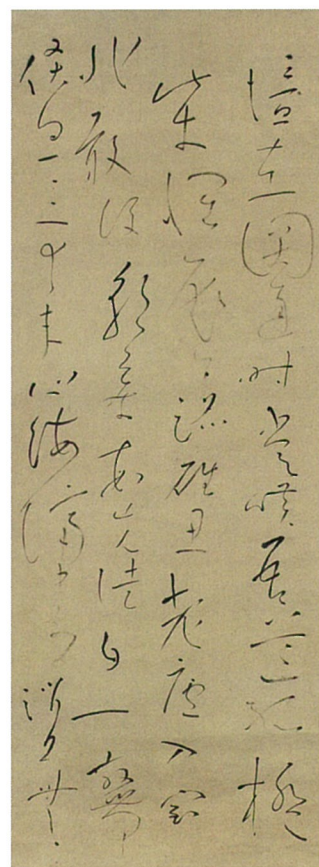 憶在圓通時常嘆吾道孤搬
柴懷龐公踏碓思老盧入室
非敢後朝參常先徒自一
倐忽三十年山海隔中州消息無